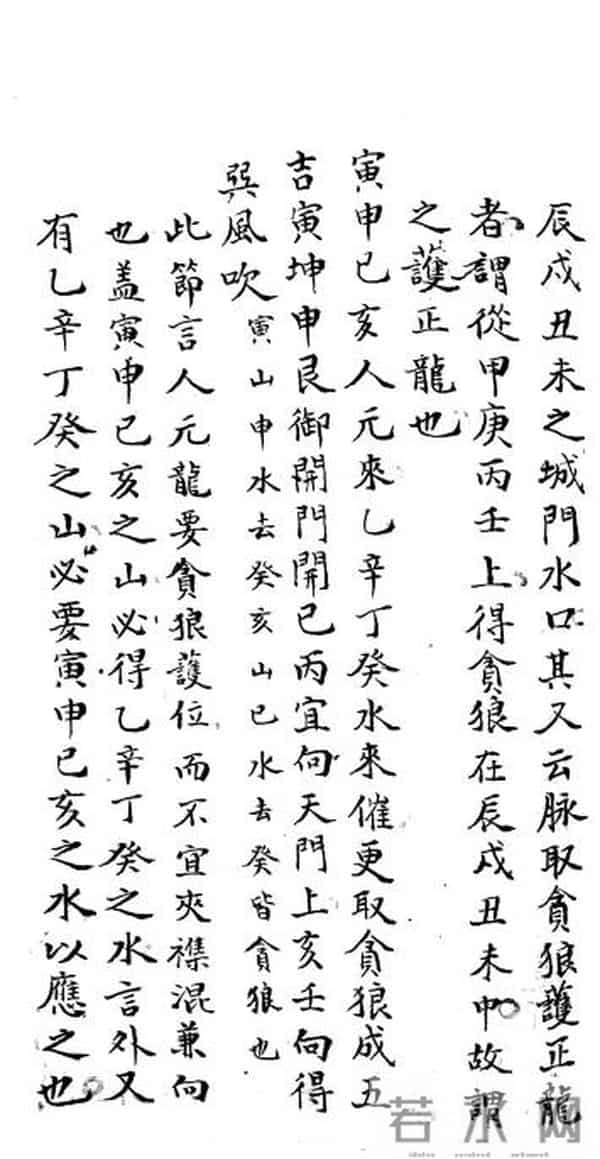 辰戍丑未之城門水口其又云脉取貪狼護正龍
者謂從甲庚丙壬上得貪狼在辰戍丑未中故謂
之護正龍也
寅申巳亥人元來乙辛丁癸水來催更取貪狼成五
吉寅坤申艮御開門開巳丙宜向天門上亥壬向得
巽風吹寅山申水去癸亥山巳水去癸皆貪狼也
此節言人元龍要貪狼護位而不宜夾襍混兼向
也盖寅申巳亥之山必得乙辛丁癸之水言外又
有乙辛丁癸之山必要寅申巳亥之水以應之也
若水网